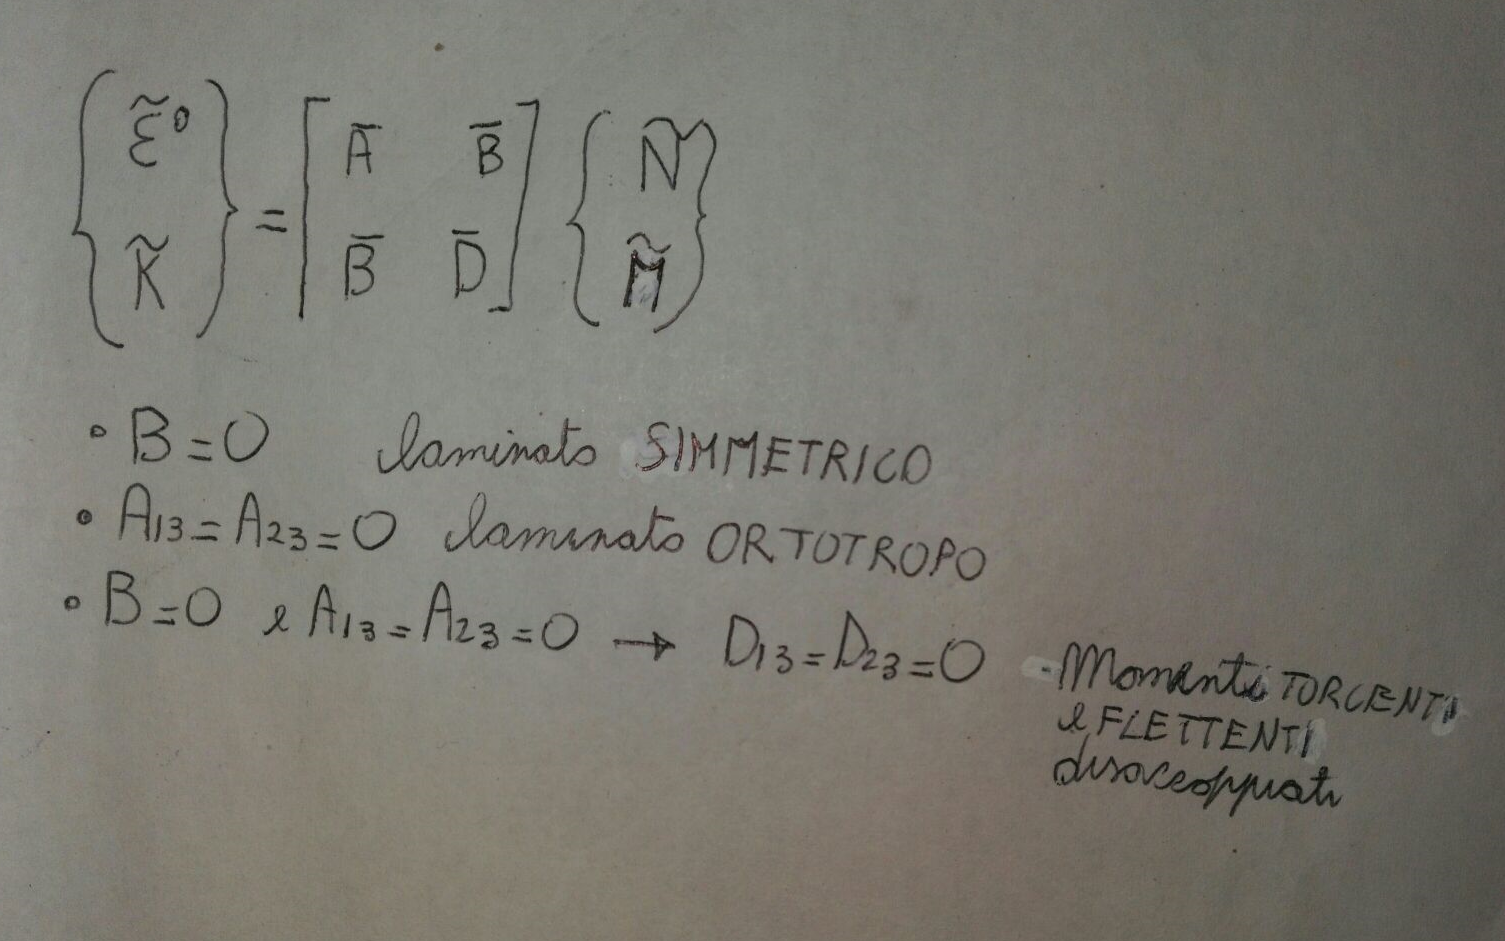 { ε̃° K̃ } = [ Ā B̄ B̄ D̄ ] { Ñ M̃ }
° B=0 laminato SIMMETRICO
° A13=A23=0 laminato ORTOTROPO
° B=0 e A13=A23=0 → D13=D23=0 - Momenti TORCENTI
e FLETTENTI
disaccoppiati